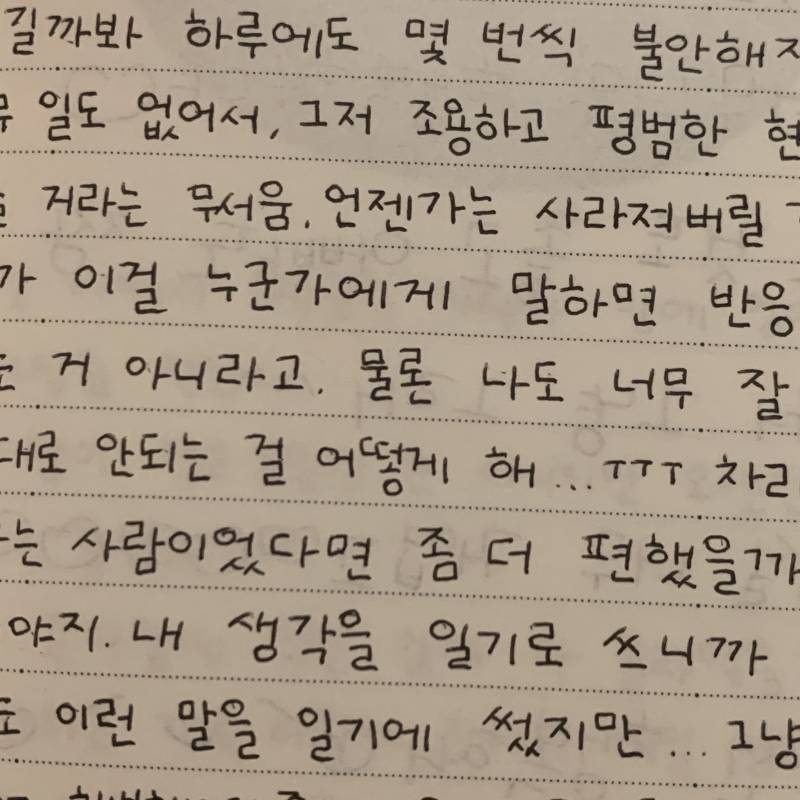 길까봐 하루에도 몇 번씩 불안해
일도 없어서, 그저 조용하고 평범한 현
거라는 무서움. 언젠가는 사라져버릴
가 이걸 누군가에게 말하면 반응
거 아니라고. 물론 나도 너무 잘
대로 안되는 걸 어떻게 해...TTT 차라
는 사람이었다면 좀 더 편했을까
야지. 내 생각을 일기로 쓰니까
이런 말을 일기에 썼지만... 그냥